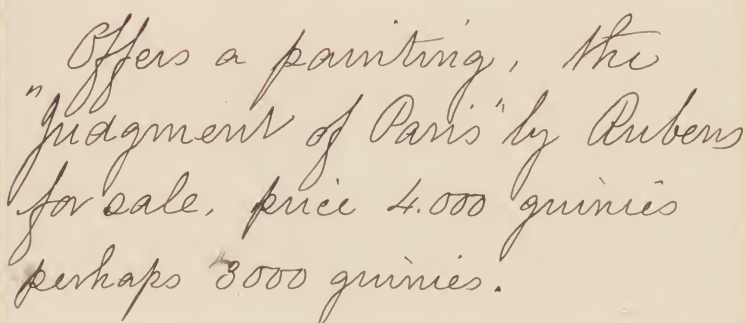 Offers a painting, the
"Judgment of Paris" by Rubens
for sale. price 4.000 guinies
perhaps 3000 guinies.